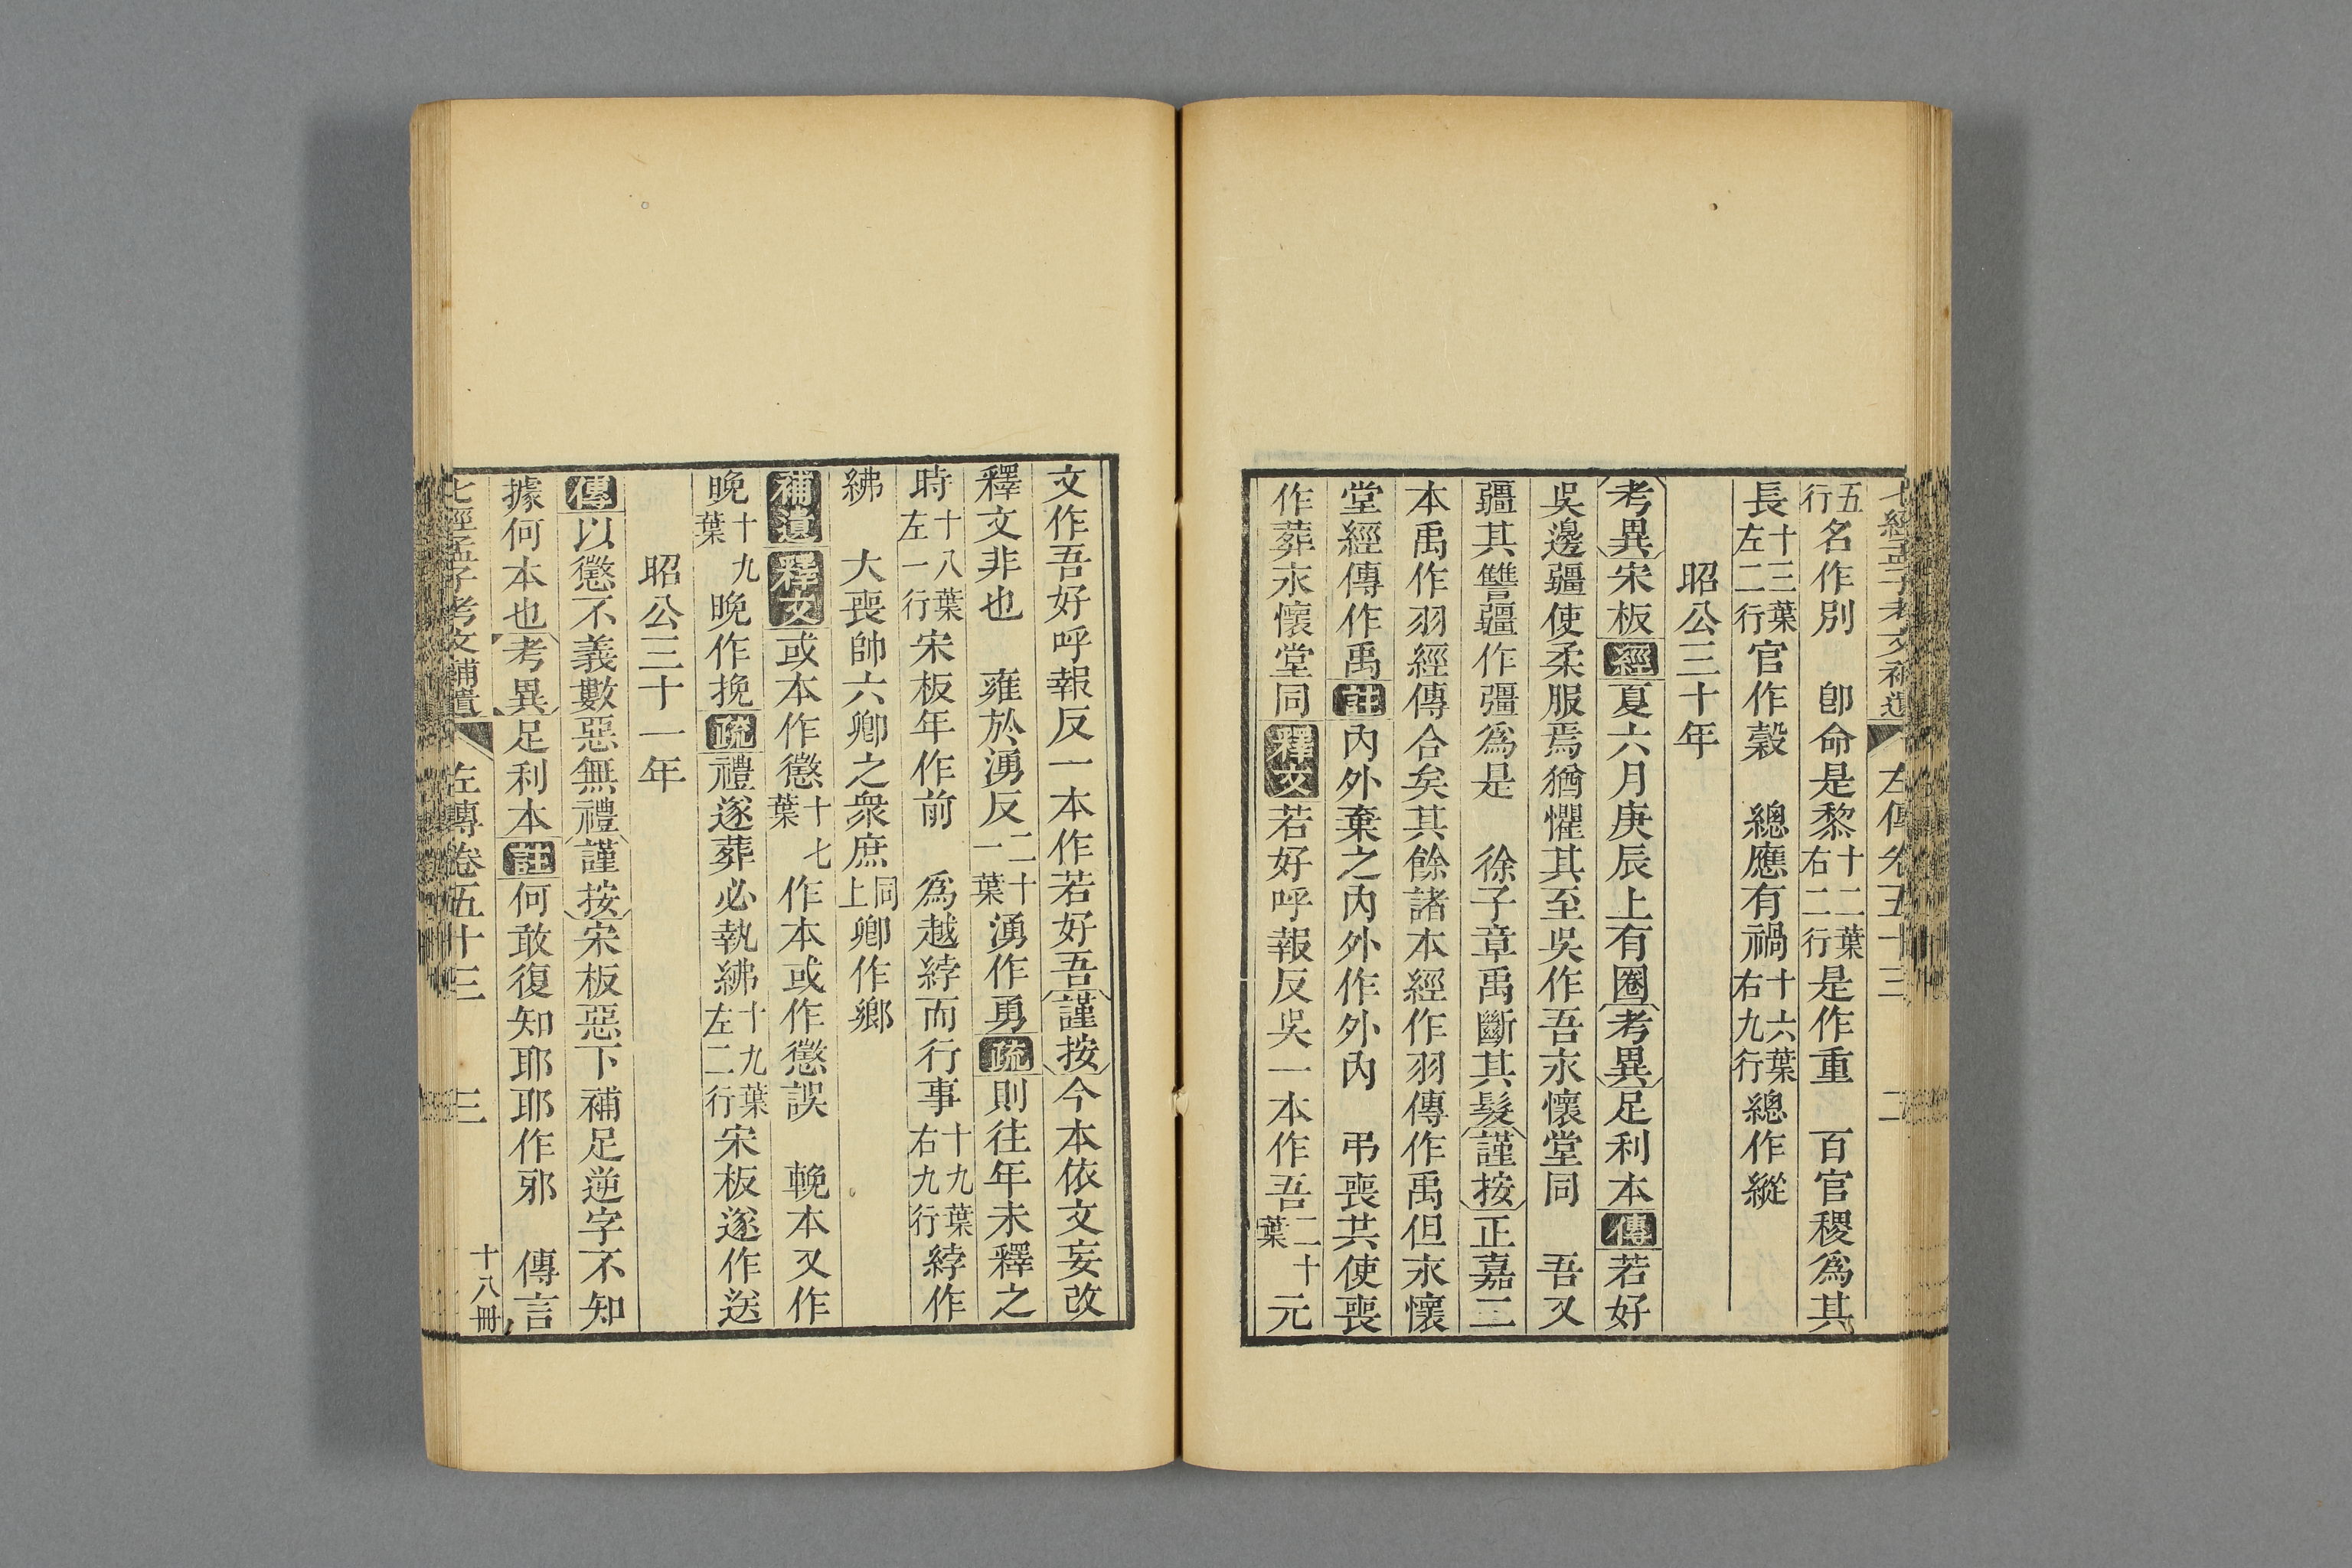 七經孟子考文補遺 左傳卷五十三 二
五行名作別 卽命是黎十二葉右二行是作重 百官稷爲其
長十三葉左二行官作穀 總應有禍十六葉右九行總作縱
昭公三十年
考異宋板經夏六月庚辰上有圈考異足利本傳若好
吳邊疆使柔服焉猶懼其至吳作吾永懷堂同 吾又
疆其讐疆作彊爲是 徐子章禹斷其髮謹按正嘉二
本禹作羽經傳合矣其餘諸本經作羽傳作禹但永懷
堂經傳作禹註內外棄之內外作外內 弔喪共使喪
作葬永懷堂同釋文若好呼報反吳一本作吾二十葉元
文作吾好呼報反一本作若好吾謹按今本依文妄改
釋文非也 雍於湧反二十一葉湧作勇疏則往年未釋之
時十八葉左一行宋板年作前 爲越綍而行事十九葉右九行綍作
紼 大喪帥六卿之衆庶同上卿作鄉
補遺釋文或本作懲十七葉作本或作懲誤 輓本又作
晚十九葉晚作挽疏禮遂葬必執紼十九葉左二行宋板遂作送
昭公三十一年
傳以懲不義數惡無禮謹按宋板惡下補足逆字不知
據何本也考異足利本註何敢復知耶耶作邪 傳言
七經孟子考文補遺 左傳卷五十三 三 十八冊